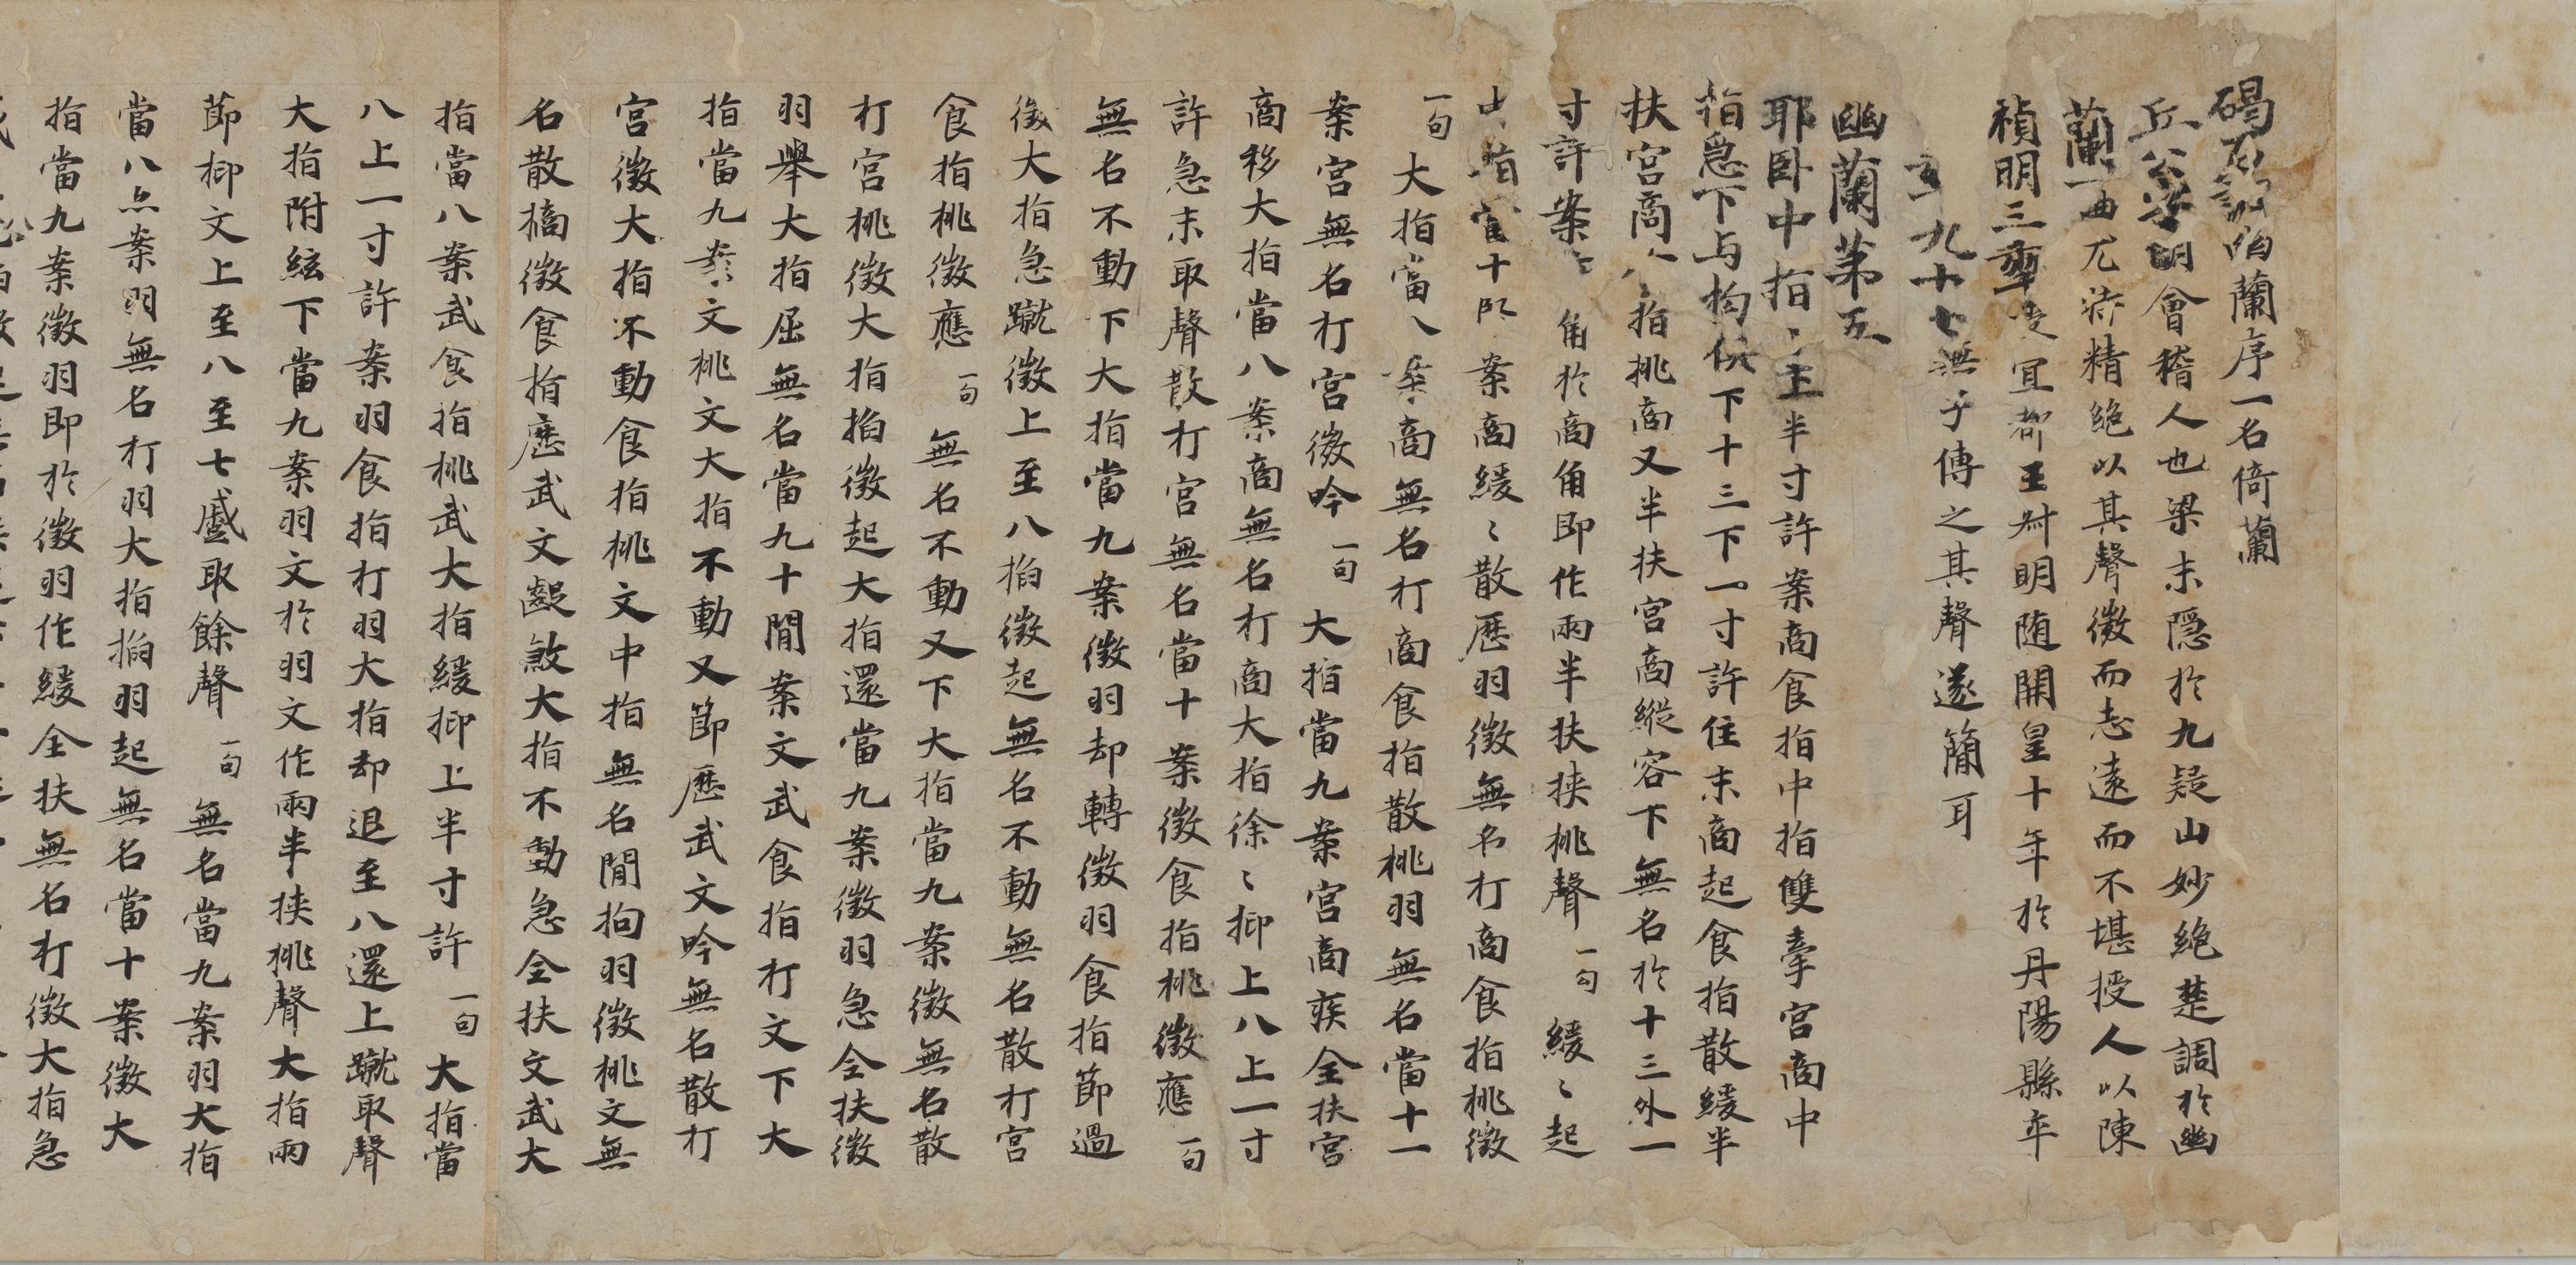 碣石調幽蘭序一名倚蘭
丘公字明會稽人也梁末隱於九疑山妙絕楚調於幽
蘭一曲尤特精絕以其聲微而志遠而不堪授人以陳
禎明三年授宜都王叔明隨開皇十年於丹陽縣卒
九十七無子傳之其聲遂簡耳
幽蘭第五
耶臥中指〻上半寸許案商食指中指雙牽宮商中
指急下与拘俱下十三下一寸許住末商起食指散緩半
扶宮商食指挑商又半扶宮商縱容下無名於十三外一
寸許案商角於商角即作兩半扶挾挑聲一句緩〻起
指當十案商緩〻散歷羽徵無名打商食指挑徵
一句大指當八案商無名打商食指散挑羽無名當十一
案宮無名打宮徵吟一句大指當九案宮商疾全扶宮
商移大指當八案商無名打商大指徐〻抑上八上一寸
許急末取聲散打宮無名當十案徵食指挑徵應一句
無名不動下大指當九案徵羽却轉徵羽食指節過
徵大指急蹴徵上至八掐徵起無名不動無名散打宮
食指挑徵應一句無名不動又下大指當九案徵無名散
打宮挑徵大指掐徵起大指還當九案徵羽急全扶徵
羽舉大指屈無名當九十間案文武食指打文下大
指當九案文挑文大指不動又節歷武文吟無名散打
宮徵大指不動食指挑文中指無名間拘羽徵挑文無
名散擿徵食指歷武文齪煞大指不動急全扶文武大
指當八案武食指挑武大指緩抑上半寸許一句大指當
八上一寸許案羽食指打羽大指却退至八還上蹴取聲
大指附絃下當九案羽文於羽文作兩半挾挑聲大指兩
節抑文上至八至七蹙取餘聲一句無名當九案羽大指
當八上案羽無名打羽大指掐羽起無名當十案徵大
指當九案徵羽即於徵羽作緩全扶無名打徵大指急